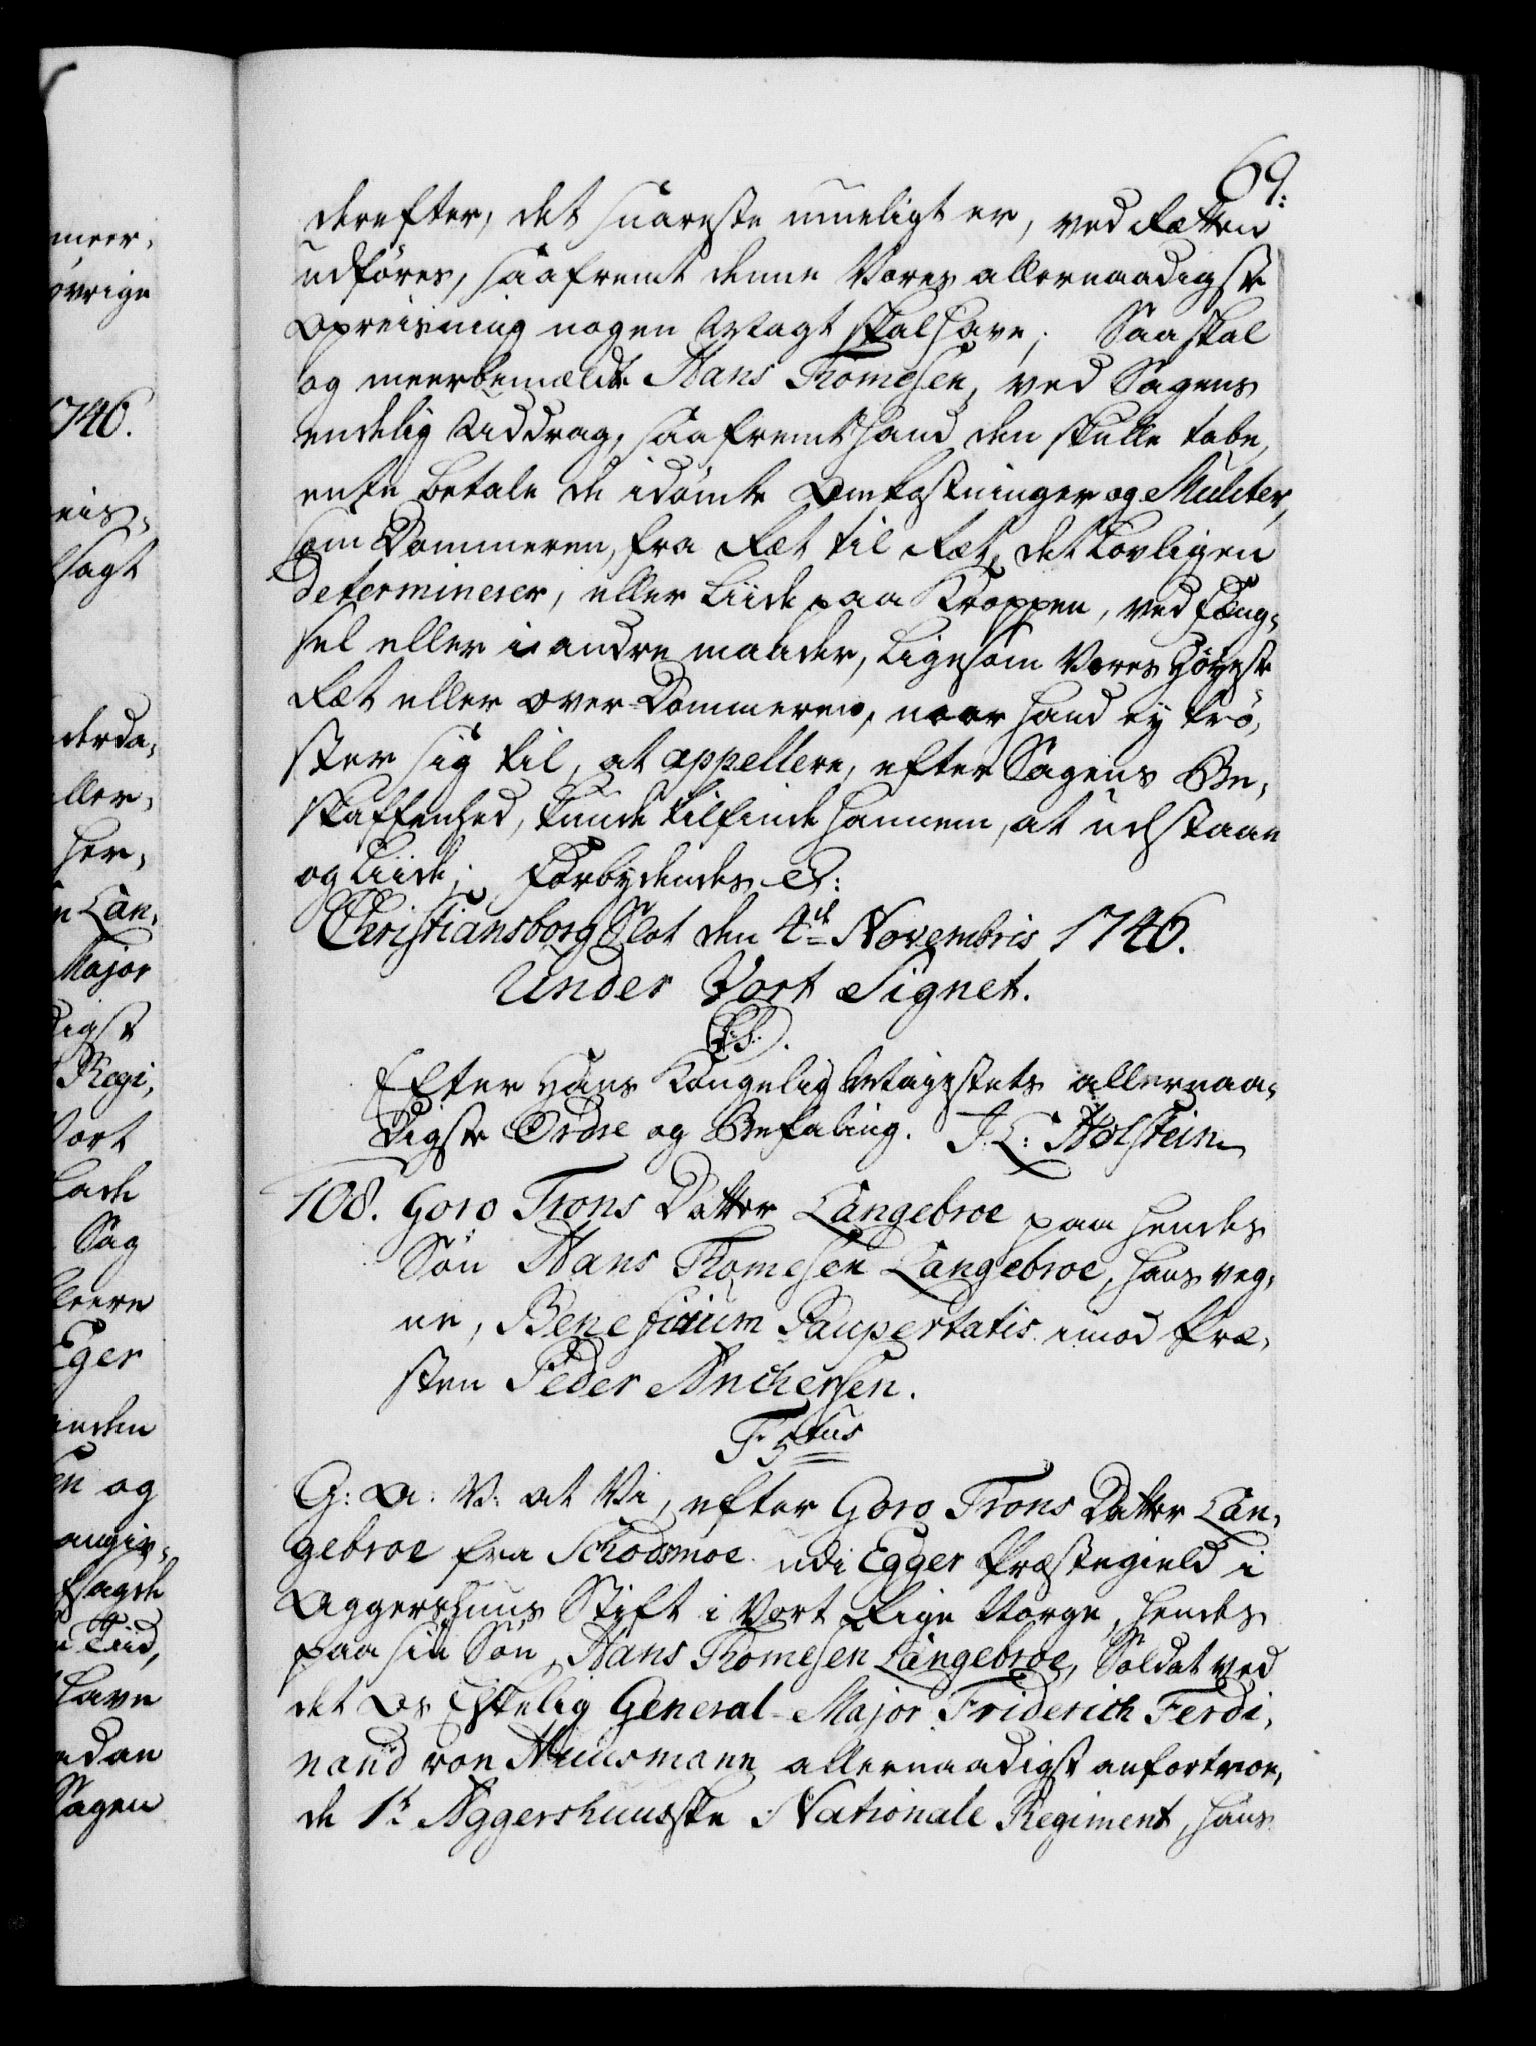 69.
derefter, det snareste mueligt er, ved Retten
udføres, saafremt denne Vores allernaadigste
Opreisning nogen Magt skal have; Saa skal
og meerbemældte Hans Thomesen, ved Sagens
endelig Uddrag, saafremt hand den skulle tabe,
enten betale de idømte Omkostninger og Mulcter,
som Dommeren, fra Ræt til Ræt, det Lovligen
determinerer, eller Liide paa Kroppen, ved Fæng-
sel eller i andre maader, Ligesom Vores Høyeste
Ræt eller over-Dommeren, naar hand ey trø-
ster sig til, at appellere, efter Sagens Be-
skaffenhed, kunde tilfinde hannem, at udstaae
og Liide; Forbydendes &:
Christiansborg Slot den 4de Novembris 1746.
Under Vort Signet.
(L.S.).
Efter Hans Kongelig Mayestets allernaa-
digste Ordre og Befaling. J. L: Holstein
108. Goro Trons Datter Langebroe paa hendes
Søn Hans Thomesen Langebroe, hans veg-
ne, Beneficium Paupertatis imod Præ-
sten Peder Anchersen.
F 5tus
G: A: V: at Vi, efter Goro Trons Datter Lan-
gebroe fra Schodsmoe udi Egger Præstegield i
Aggershuus Stift i Vort Rige Norge, hendes
paa sin Søn, Hans Thomesen Langebroe, Soldat ved
det Os Elskelig General-Major Friderich Ferdi-
nand von Huusmann allernaadigst anfortroe-
de 1te Aggershuusske Nationale Regiment, hans
meer-
øvrige
1746.
reis-
sagt
derda-
ller-
her-
n Lan-
Major
digst
Regi-
Vort
lade
Sag
Eger
inden
en og
angiv-
sagde
Tiid,
have
adan
Sagen